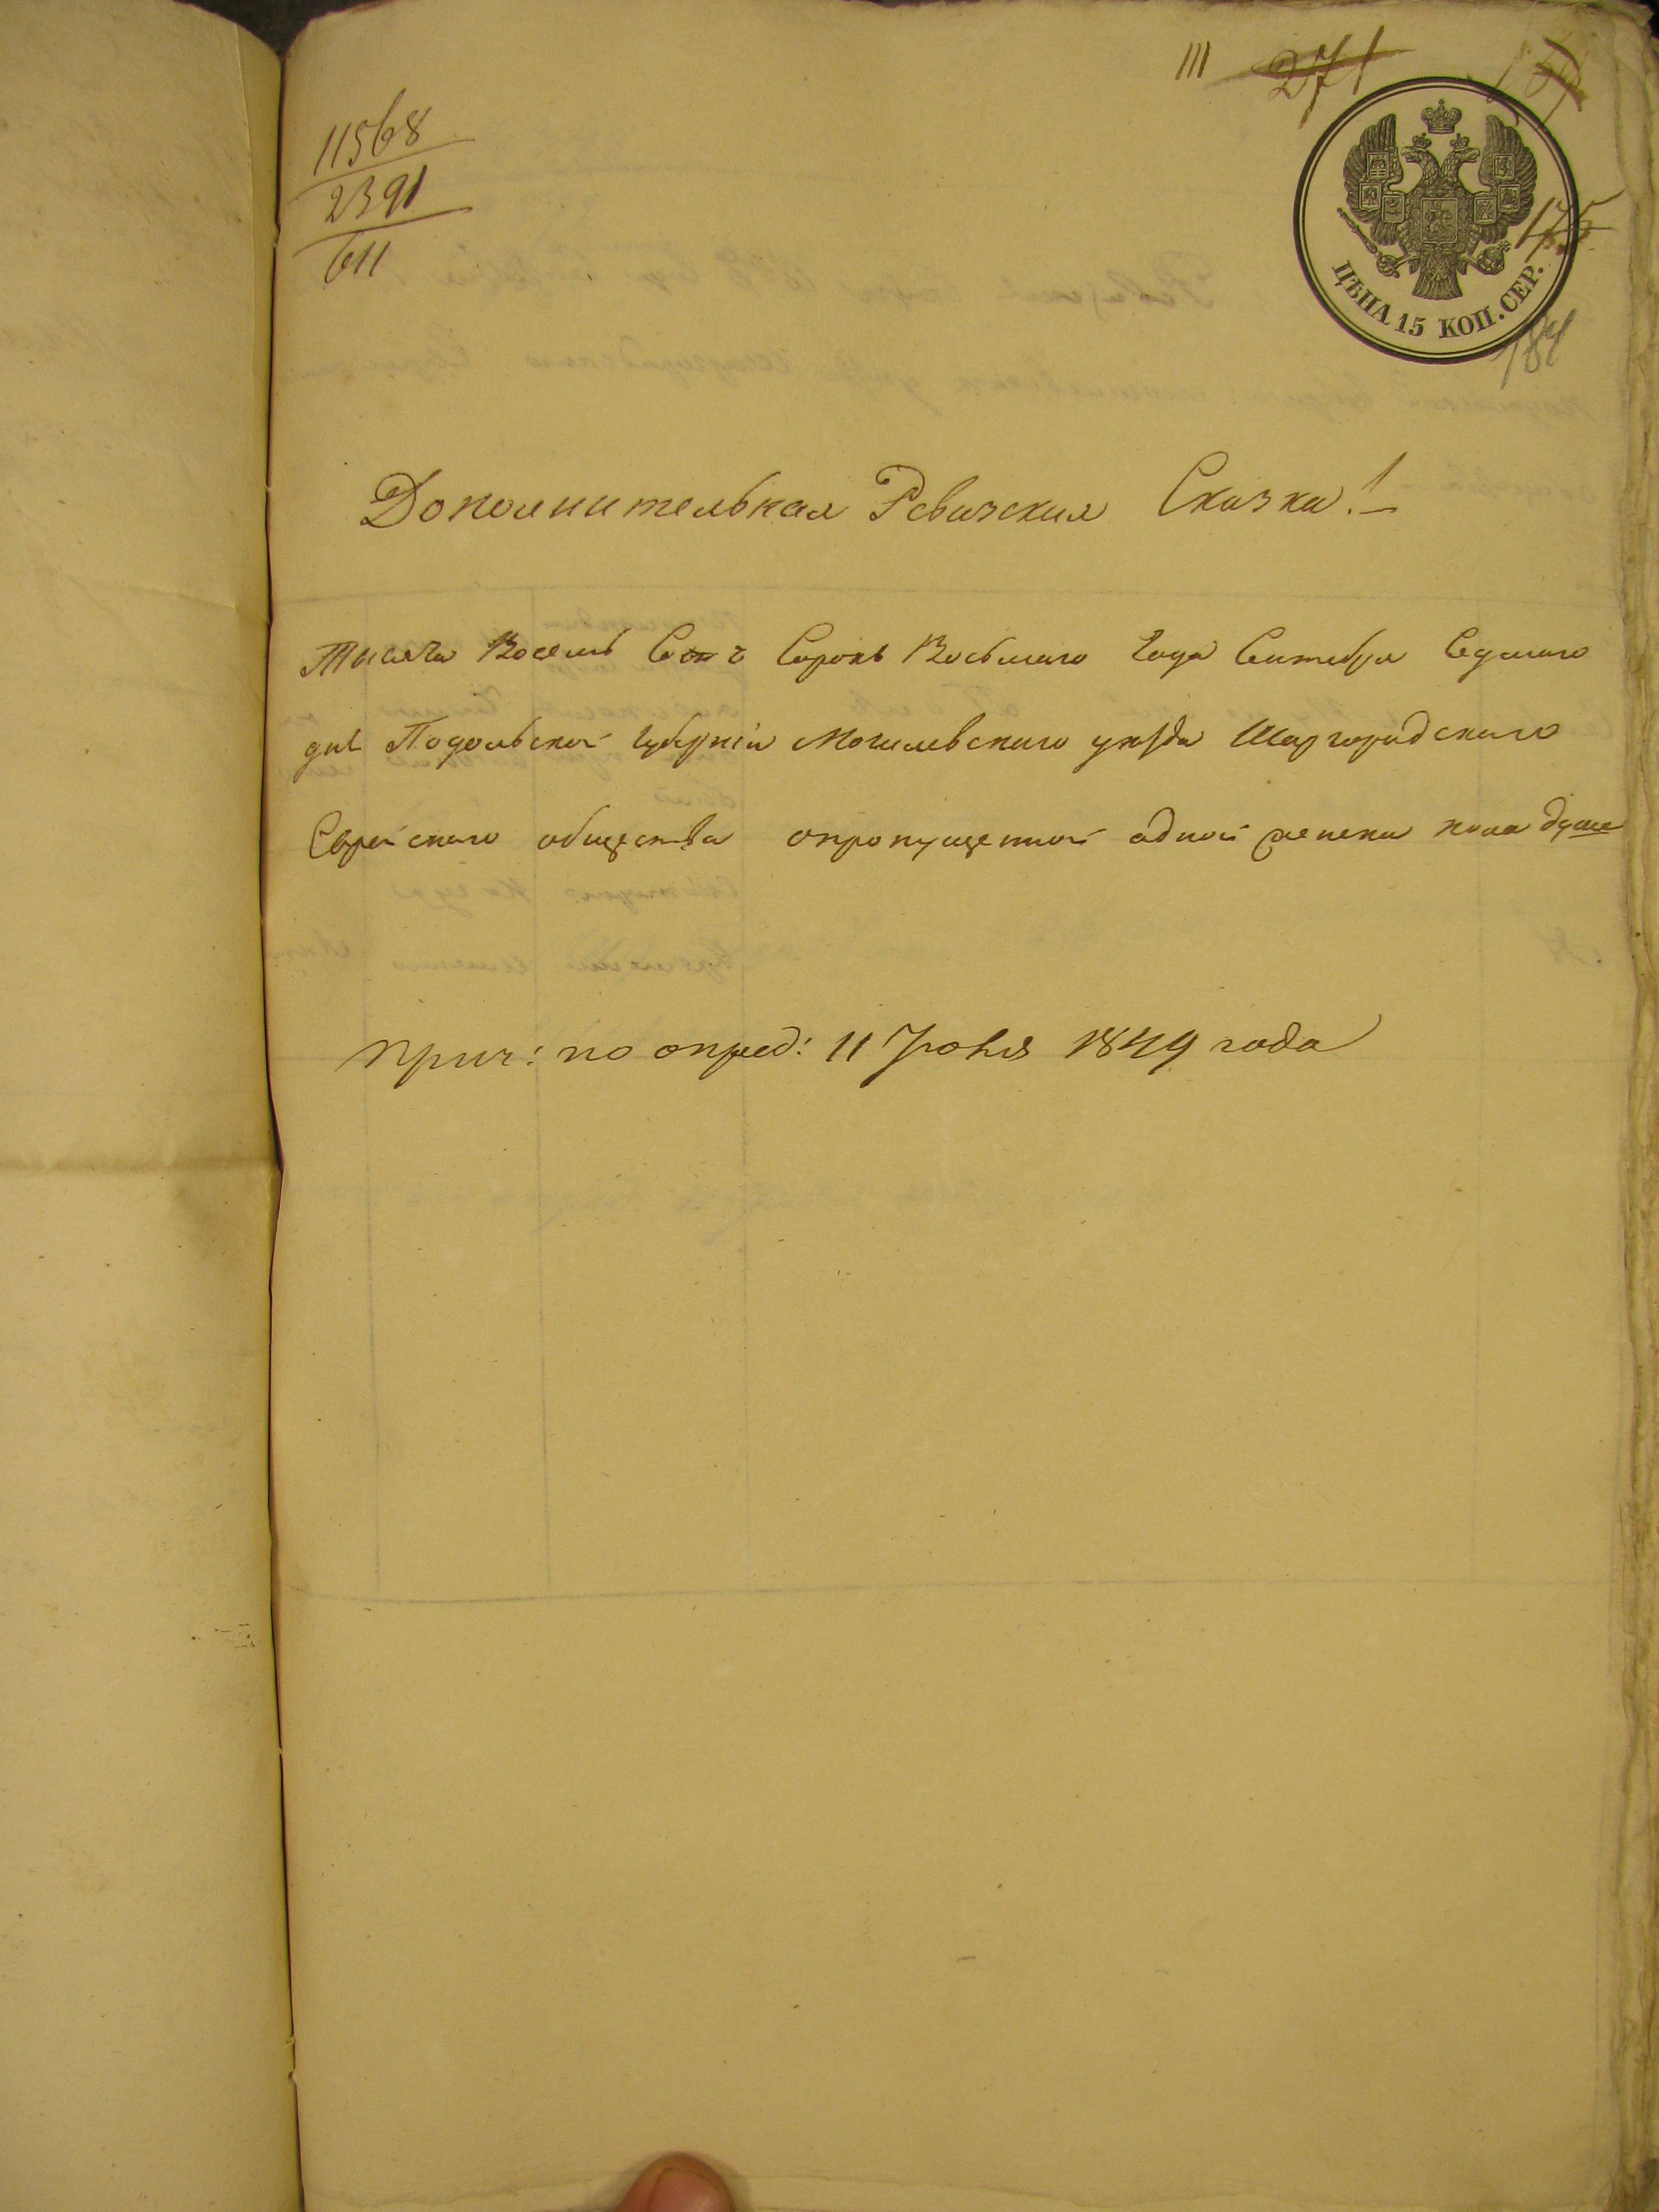 111 271
11568
2391
611
175
184
ЦѢНА 15 КОП. СЕР.
Дополнительная Ревизская Сказка!
Тысяча Восемь Сотъ Сорокъ Восьмаго Года Сентебря Седмаго
дня Подольской Губерніи Могилевскаго уезда Шаргородскаго
Еврейскаго общества опропущенной адной женска пола душе
прич: по опред: 11 Іюня 1849 года